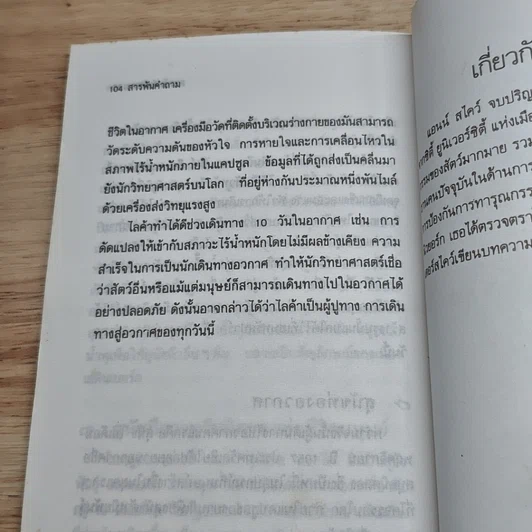 104 สารพันคำถาม
ชีวิตในอากาศ เครื่องมือวัดที่ติดตั้งบริเวณร่างกายของมันสามารถ
วัดระดับความดันของหัวใจ การหายใจและการเคลื่อนไหวใน
สภาพไร้น้ำหนักภายในแคปซูล ข้อมูลที่ได้ถูกส่งเป็นคลื่นมา
ยังนักวิทยาศาสตร์บนโลก ที่อยู่ห่างกันประมาณหนึ่งพันไมล์
ด้วยเครื่องส่งวิทยุแรงสูง
ไลค้าทำได้ดีช่วงเดินทาง 10 วันในอากาศ เช่น การ
ดัดแปลงให้เข้ากับสภาวะไร้น้ำหนักโดยไม่มีผลข้างเคียง ความ
สำเร็จในการเป็นนักเดินทางอวกาศ ทำให้นักวิทยาศาสตร์เชื่อ
ว่าสัตว์อื่นหรือแม้แต่มนุษย์ก็สามารถเดินทางไปในอวกาศได้
อย่างปลอดภัย ดังนั้นอาจกล่าวได้ว่าไลค้าเป็นผู้ปูทาง การเดิน
ทางสู่อวกาศของทุกวันนี้
เกี่ยวกั
แอนน์ สไคว์ จบปริญ
ซิตี้ ยูนิเวอร์ซิตี้ แห่งเมือ
ของสัตว์มากมาย รวม
ปัจจุบันในด้านการ
ป้องกันการทารุณกรร
เธอได้ตรวจตรา
สไคว์เขียนบทความ